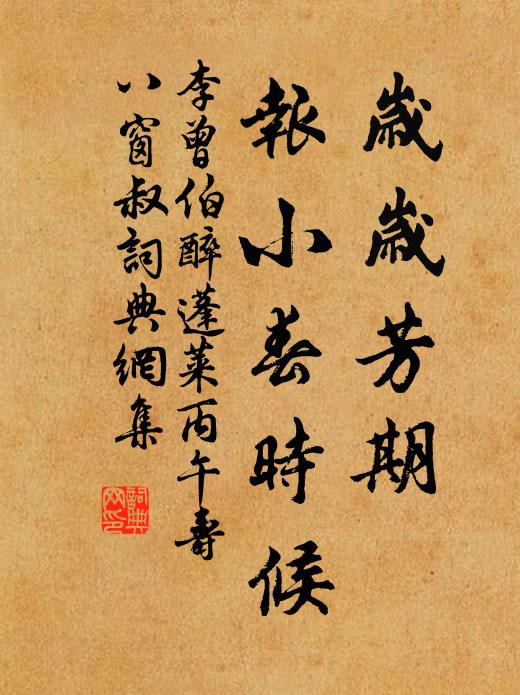 歲歲芳期
報小春時候
李曾伯醉蓬萊丙午壽
八窗叔詞典網集
詞典网印